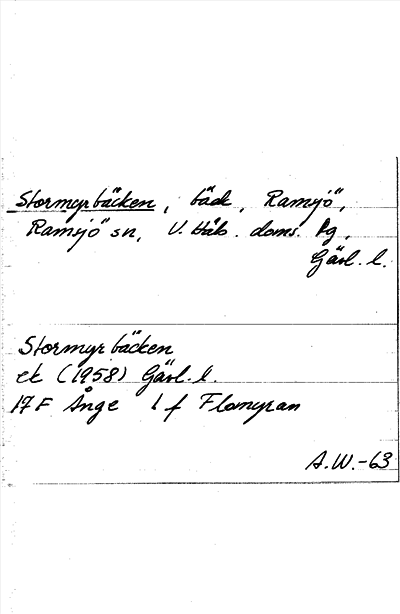 Stormyrbäcken, bäck, Ramsjö,
Ramsjö sn, V. Häls. doms. hg,
Gävl. l.
Stormyrbäcken
ek (1958) Gävl. l.
17 F Ånge 1 f Flomyran
A.W.-63